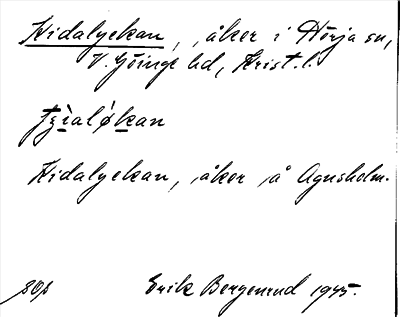 Kidalyckan, åker i Hörja sn,
V. Göinge hd, Krist. l.
Kidalyckan, åker på Agnsholm.
Erik Bergenrud 1945.